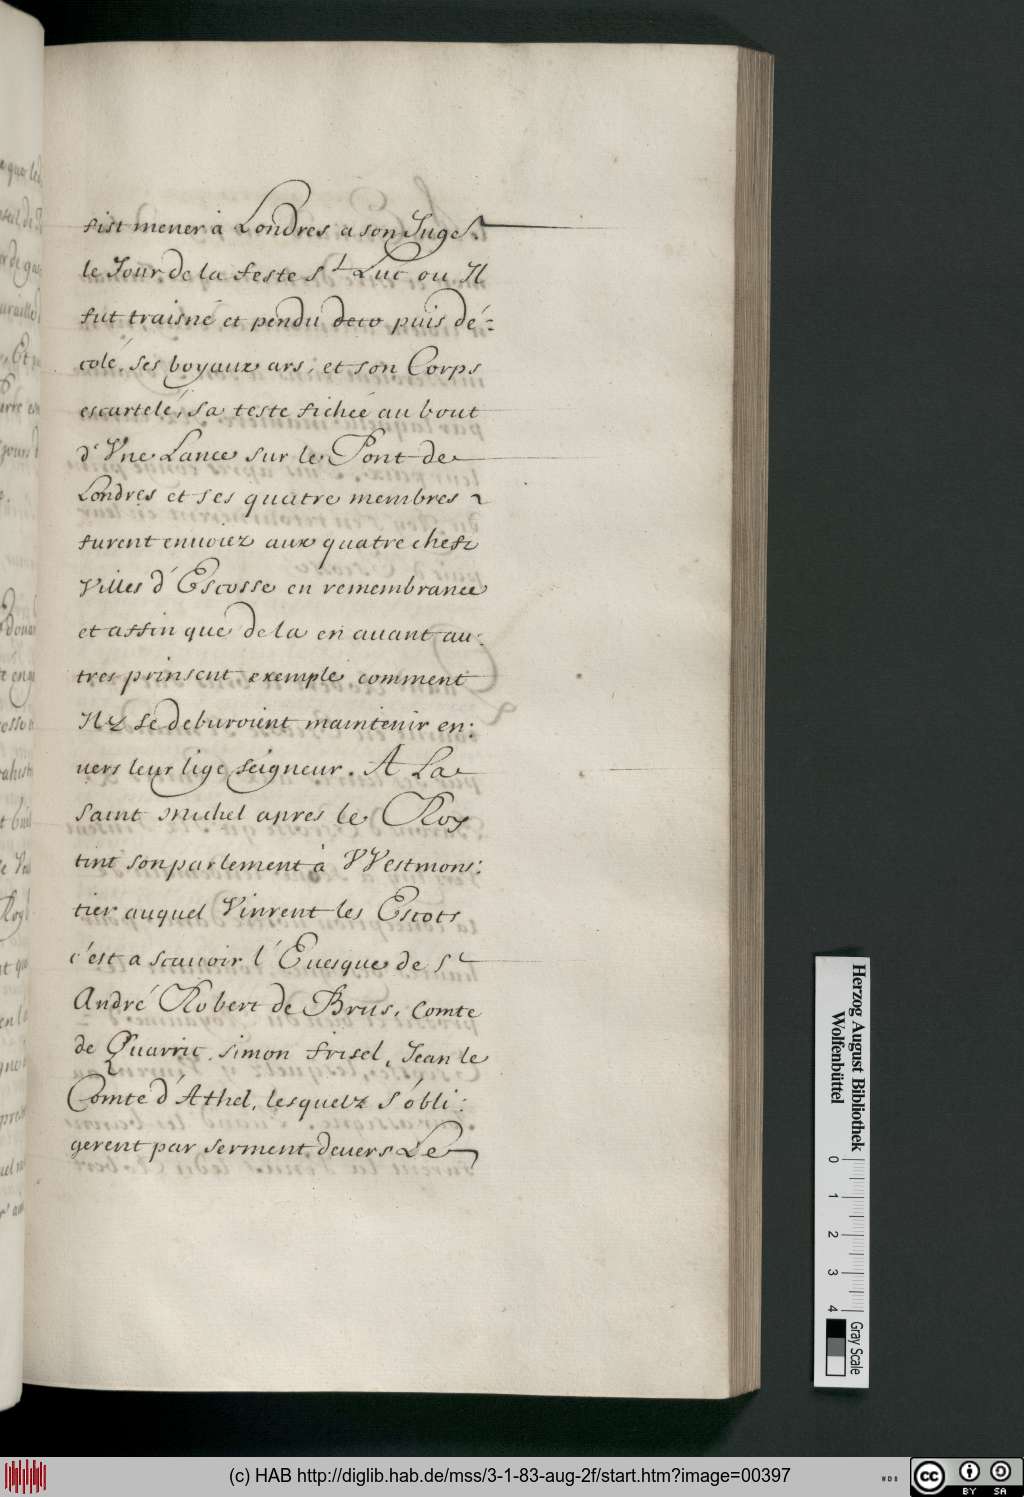 fist mener à Londres a son Juge
le Jour de la feste St Luc ou Il
fut traisné et pendu deco puis dé-
colé, ses boyaux ars, et son Corps
escartelé, sa teste fichée au bout
d'Vne Lance sur le Pont de
Londres et ses quatre membres
furent enuoiez aux quatre chefz
villes d'Escosse en remembrance
et affin que de la en auant au:
tres prinsent exemple comment
Ilz se deburoient maintenir en:
uers leur lige seigneur. A La
saint Michel apres le Roy
tint son parlement à VVestmons:
tier auquel Vinrent les Escots
c'est a scauoir l'Euesque de St
André Robert de Brus, Comte
de Quarric, simon frisel, Jean le
Comte d'Athel, lesquelz s'obli:
gerent par serment deuers Le
Herzog August Bibliothek
Wolfenbüttel
0 1 2 3 4
Gray Scale
(c) HAB http://diglib.hab.de/mss/3-1-83-aug-2f/start.htm?image=00397
WDB
cc BY SA